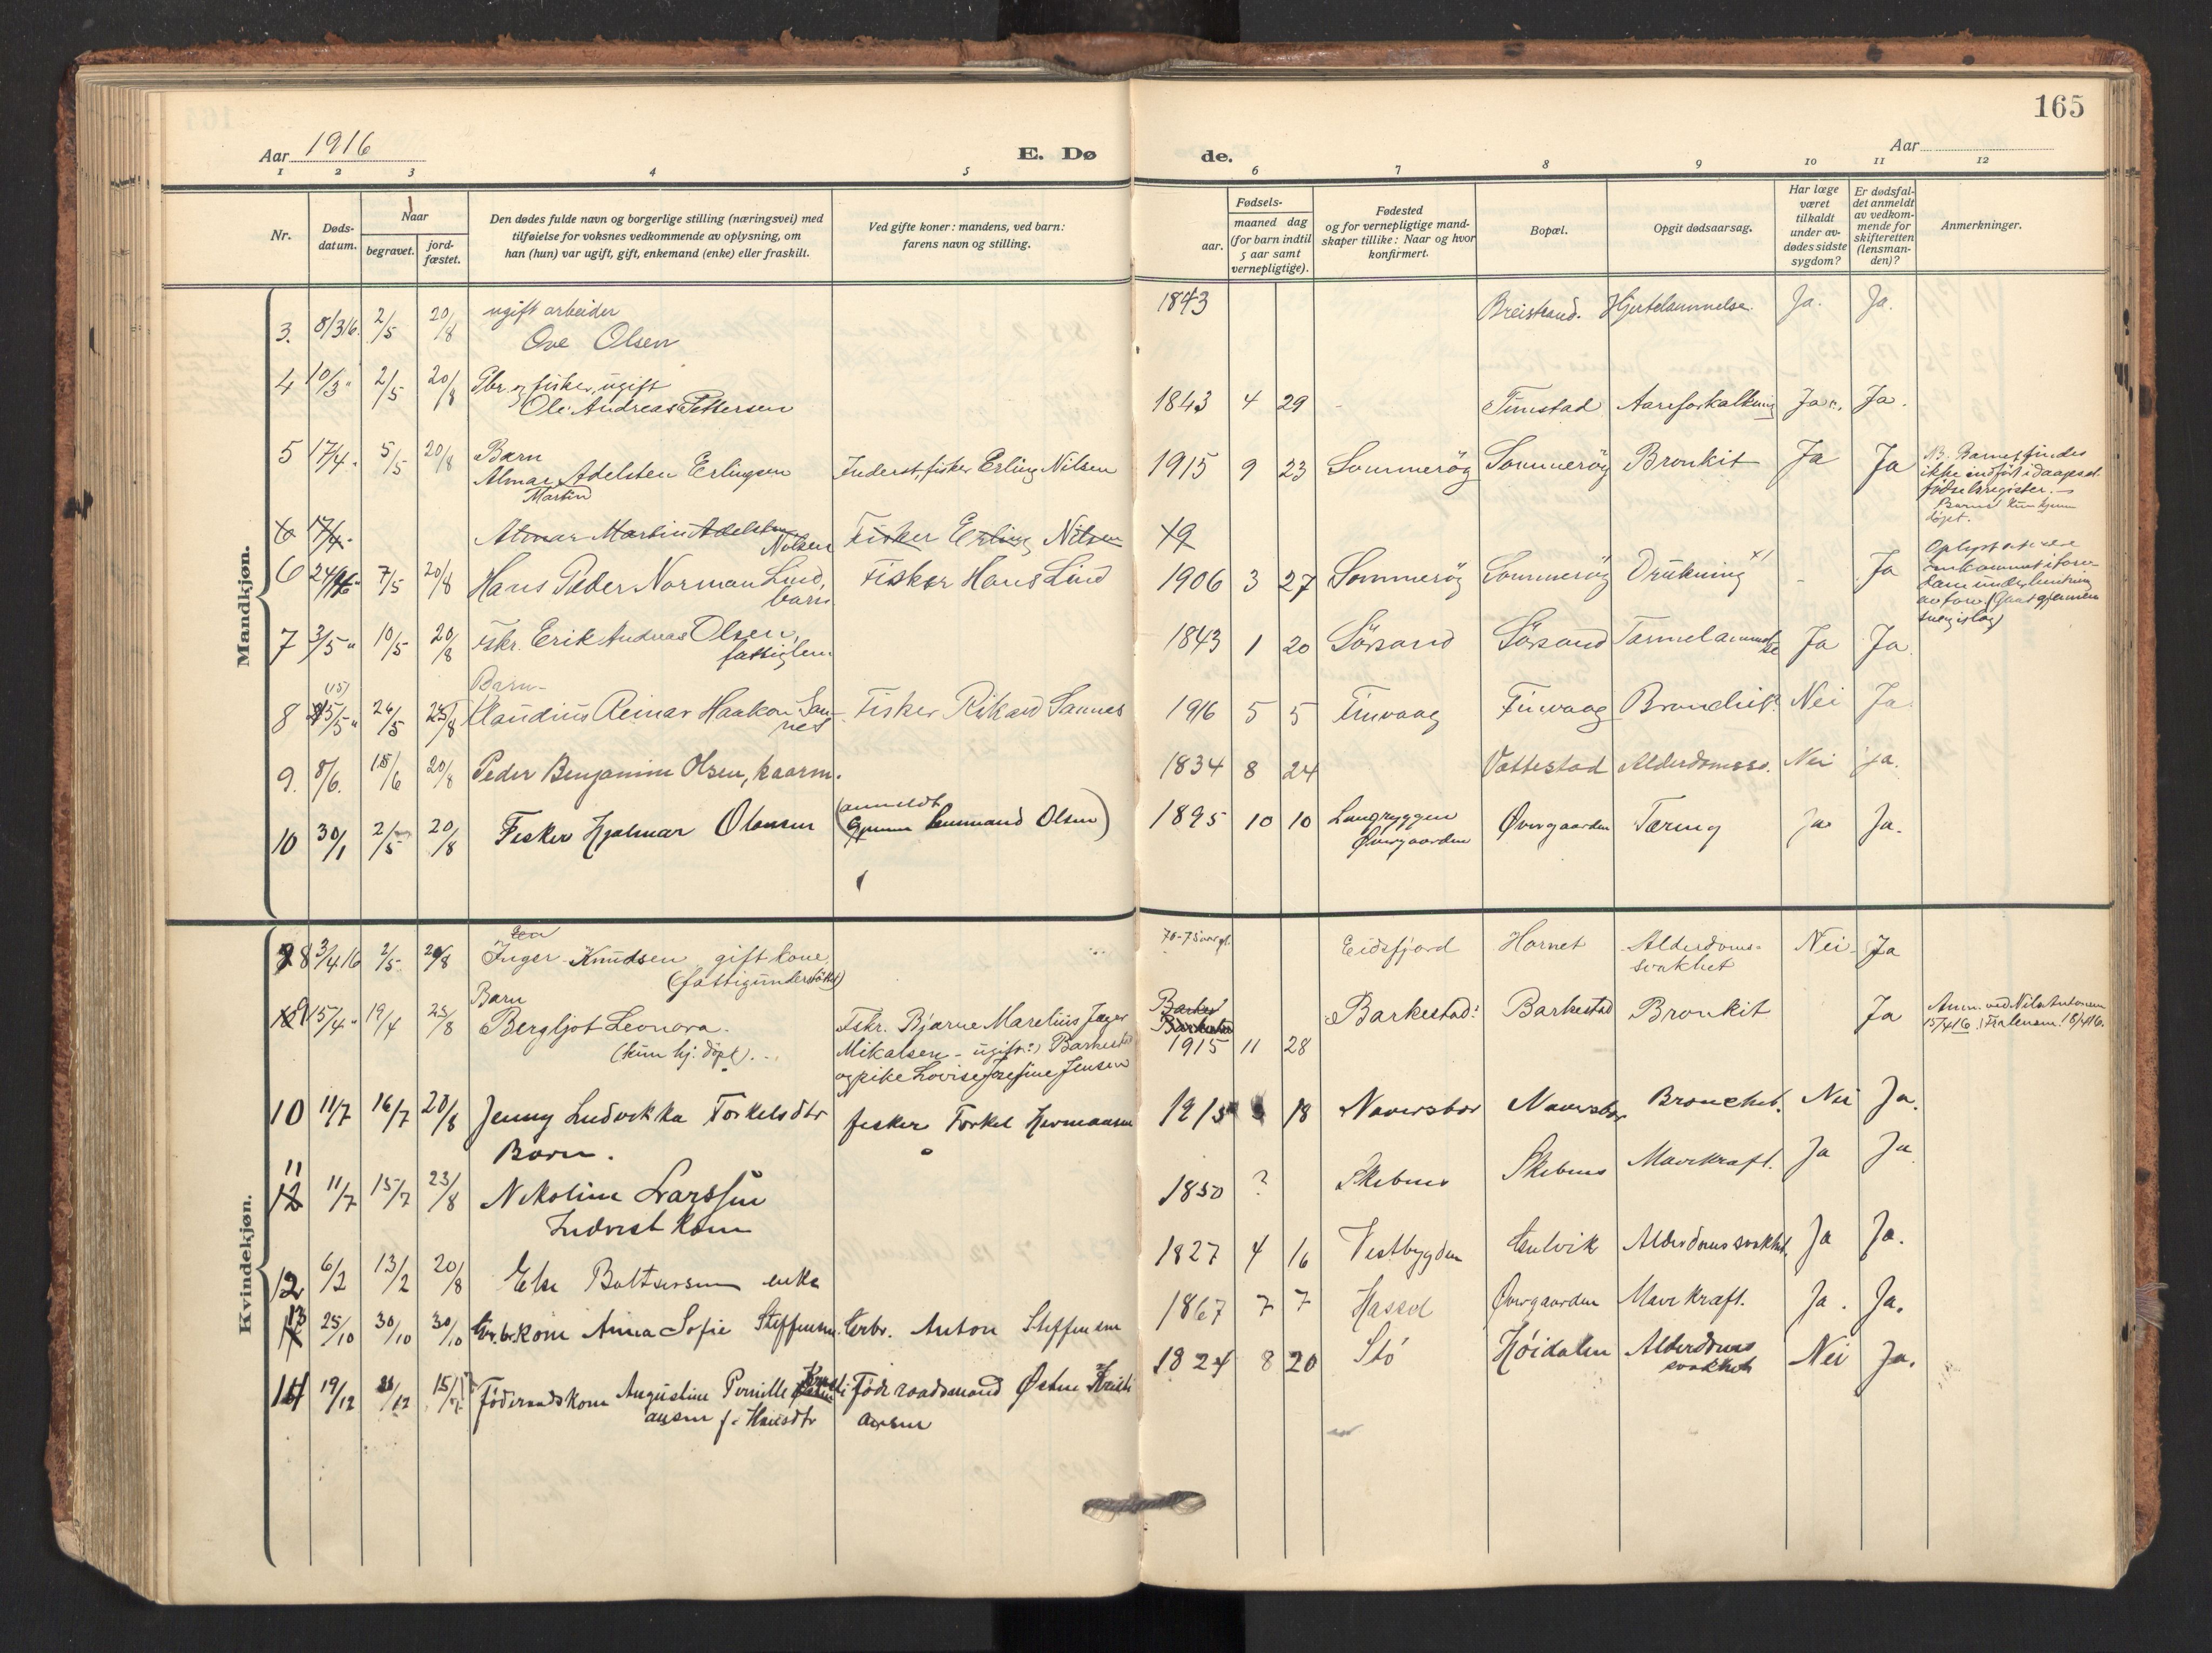 165
Aar 1916
E. Dø de.
Aar
1 2 3 4 5 6 7 8 9 10 11 12
Nr.
Døds-
datum.
Naar
begravet.
jord-
fæstet.
Den dødes fulde navn og borgerlige stilling (næringsvei) med
tilføielse for voksnes vedkommende av oplysning, om
han (hun) var ugift, gift, enkemand (enke) eller fraskilt.
Ved gifte koner: mandens, ved barn:
farens navn og stilling.
Fødsels-
aar.
maaned dag
(for barn indtil
5 aar samt
vernepligtige).
Fødested
og for vernepligtige mand-
skaper tillike: Naar og hvor
konfirmert.
Bopæl.
Opgit dødsaarsag.
Har læge
været
tilkaldt
under av-
dødes sidste
sygdom?
Er dødsfal-
det anmeldt
av vedkom-
mende for
skifteretten
(lensman-
den)?
Anmerkninger.
Mandkjøn.
3. 8/3 16. 2/5 20/8 ugift arbeider
Ove Olsen
1843 Breistrand. Hjertelammelse. Ja. Ja.
4 10/3 " 2/5 20/8 Gbr. og fisker, ugift
Ole Andreas Pettersen
1843 4 29 Tinnstad Aareforkalkning Ja. Ja.
5 17/4 " 5/5 20/8 Barn
Almar Adelsten Erlingsen
Martin
Inderst, fisker Erling Nilsen 1915 9 23 Sommerøy Sommerøy Bronkit Ja Ja
NB. Barnet findes
ikke indført i daaps el.
fødselsregister.
Barnet kun hjem
døpt.
6 17/4 " Almar Martin Adelsten
Nilsen
Fisker Erling Nilsen 19
6 24/4 16 " 7/5 20/8 Hans Peder Norman Lind,
barn
Fisker Hans Lind 1906 3 27 Sommerøy Sommerøy Drukning x) - Ja
7 3/5 " 10/5 20/8 Fskr. Erik Andreas Olsen,
fattiglem
1843 1 20 Sörsand Sörsand Tarmelammelse Ja Ja
8 (15) 15/5 " 26/5 25/8 Barn-
Klaudius Reinar Haakon San-
nes
Fisker Rikard Sannes 1916 5 5 Finvaag Finvaag Bronchit. Nei Ja
9. 8/6. 18/6 20/8 Peder Benjamin Olsen, kaarm.
1834 8 24 Vottestad Alderdomssv. Nei ja.
10 30/1 2/5 20/8 Fisker Hjalmar Olausen (anmeldt
gjennem lensmand Olsen)
1895 10 10 Langryggen
Øvergaarden
Øvergaarden Tæring Ja Ja.
Kvindekjøn.
8 3/4 16 2/5 20/8 Inger Knudsen gift kone
(fattigunderstöttet)
70-75 aar gl. Eidsfjord Hornet Alderdoms-
svakhet
Nei Ja
9 15/4 " 19/4 25/8 Barn
Bergljot Leonora.
(kun hj. döpt).
Fskr. Bjarne Marelius Jæger
Mikalsen - ugift?) Barkestad
og pike Lovise Josefine Jensen
Barkestad
1915 11 28 Barkestad Barkestad Bronkit Ja
Anm. ved Nils Antonsen
15/4 16. (Fra lensm. 18/4 16.
10 11/7 16/7 20/8 Jenny Ludvikka Torkelsdtr
Barn.
fisker Torkel Hermansen
1915 18 Naversbor Naversbor Bronchit. Nei Ja.
11 12 11/7 15/7 23/8 Nikoline Larssen
Inderst kone
1850 ? Skibnes Skibnes Mavekræft. Ja Ja
12 6/2 13/2 20/8 Else Baltsersen enke
1827 4 16 Vestbygden Gulvik Alderdomssvakhet Ja Ja.
13 25/10 30/10 30/10 Gr.br. kone Anna Sofie Steffensen. Grbr. Anton Steffensen
1867 7 7 Hassel Øvergaarden Mavekræft. Ja. Ja.
14 19/12 /12 15/ Föderaadskone Augustine Pernille Kristi
ansen f. Hansdtr
Föderaadsmand Østen Kristi
ansen
1824 8 20 Stö Høidalen Alderdoms
svakhet
Nei Ja.